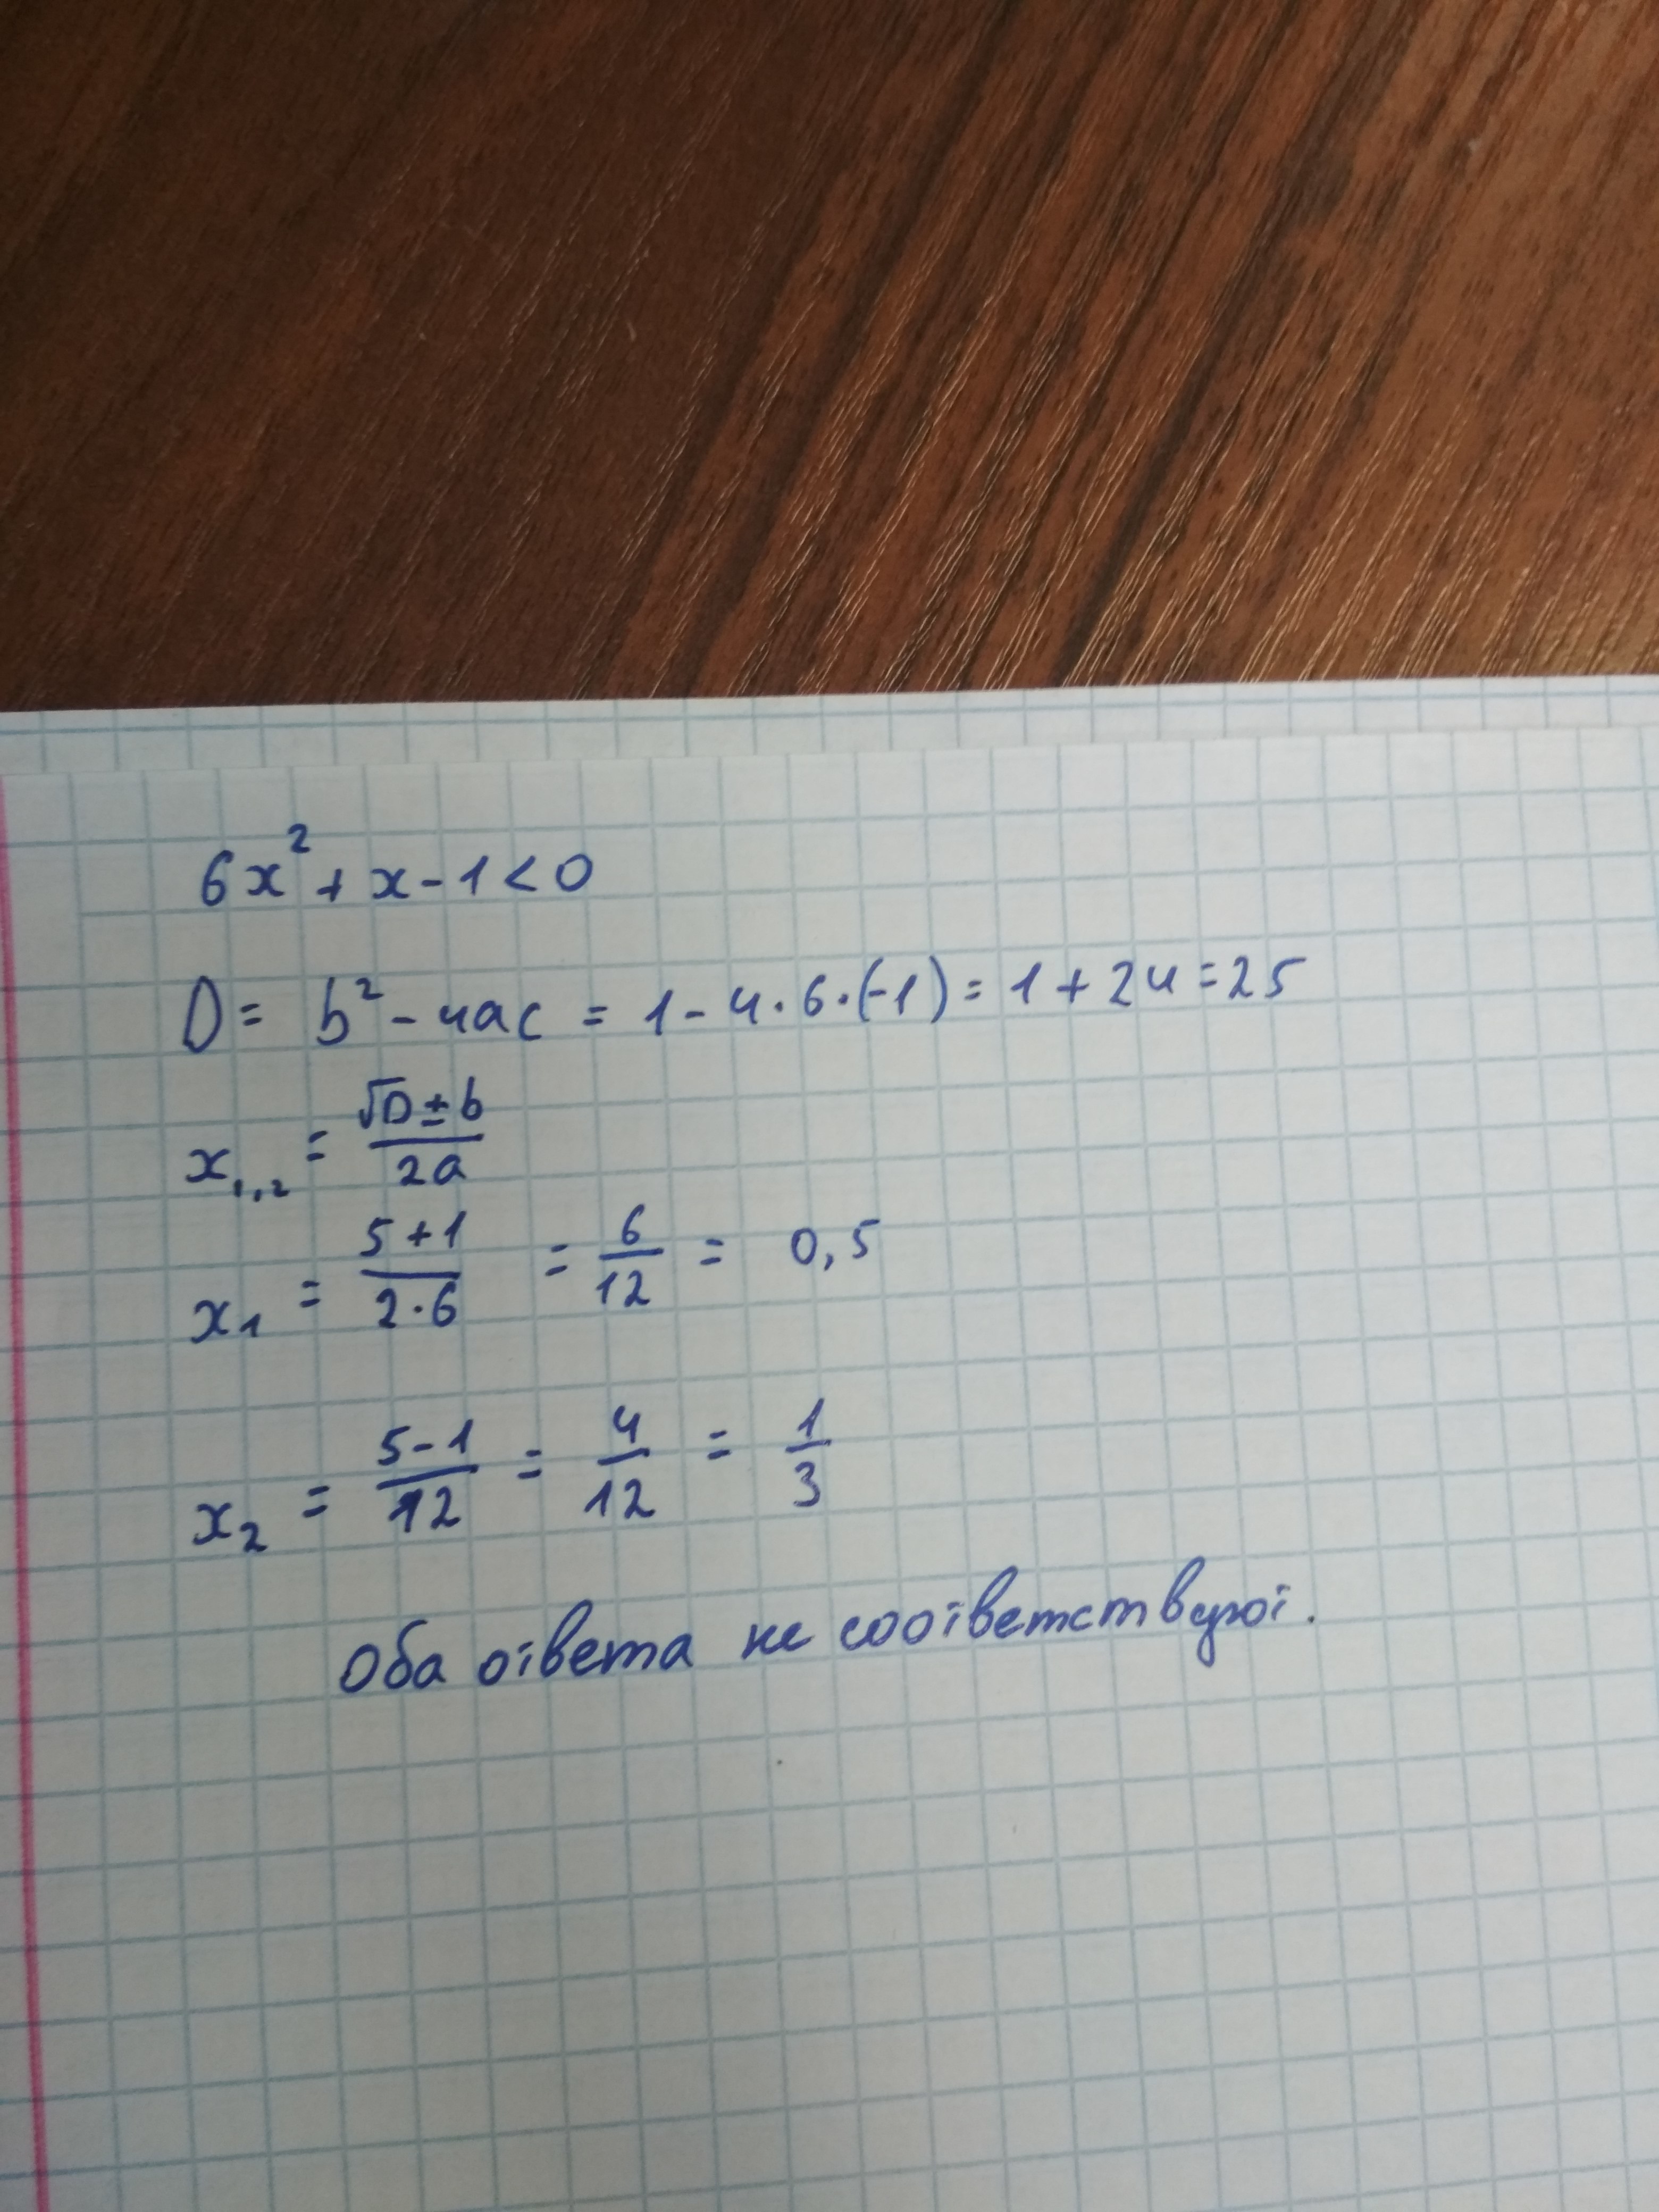 6x² + x - 1 < 0
D = b² - 4ac = 1 - 4·6·(-1) = 1 + 24 = 25
x₁,₂ = (√D ± b)/(2a)
x₁ = (5+1)/(2·6) = 6/12 = 0,5
x₂ = (5-1)/12 = 4/12 = 1/3
Оба ответа не соответствуют.